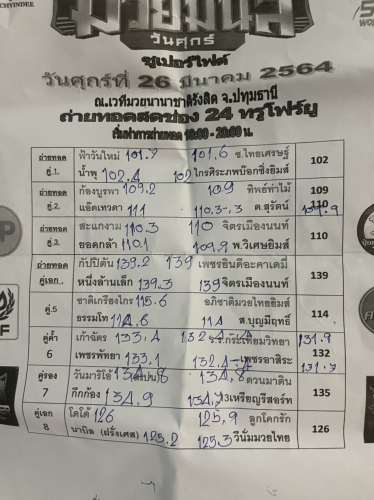 มวยมันส์
วันศุกร์
ซูเปอร์ไฟต์
วันศุกร์ที่ 26 มีนาคม 2564
ณ.เวทีมวยนานาชาติรังสิต จ.ปทุมธานี
ถ่ายทอดสดช่อง 24 ทรูโฟร์ยู
เริ่มทำการถ่ายทอด 18:00 - 20:00 น.
ถ่ายทอด ฟ้าวันใหม่ 101.8 101.6 ช.ไทยเศรษฐ์ 102
คู่.1 น้ำพุ 102.4 102 ไกรศิระภพบ๊อกซิ่งยิมส์
ถ่ายทอด ก้องบูรพา 109.2 109 ทิพย์ท่าไม้ 109
คู่.2. แอ๊ดเทวดา 111 110.3-.3 ด.สุรัตน์ 110 109.9
ถ่ายทอด สะแกงาม 110.3 110 จิตรเมืองนนท์ 110
คู่.3. ยอดกล้า 110.1 109.9 พ.วิเศษยิมส์
ถ่ายทอด กัปปิตัน 139.2 139 เพชรยินดีอะคาเดมี่ 139
คู่เอก . หนึ่งล้านเล็ก 139.3 139 จิตรเมืองนนท์
คู่.5 ชาติเกรียงไกร 115.6 อภิชาติมวยไทยยิมส์ 114
ธรรมโท 114.6 114 ส.บุญมีฤทธิ์
คู่ค้ำ เก้าฉัตร 133.4 132.4 วิทยา 131.9
6 เพชรพัทยา 133.1 132.4 เพชรอาสิระ 132 131.7
คู่รอง วันมาริโอ้ 134.8 134.8 ดวนมาดิน 135
7 กึกก้อง 134.9 134.7 13เหรียญรีสอร์ท
คู่เอก โตโต้ 126 125.9 ลูกโคกรัก 126
8 นาบิล (ฝรั่งเศส) 125.2 125.3 วีนั่มมวยไทย